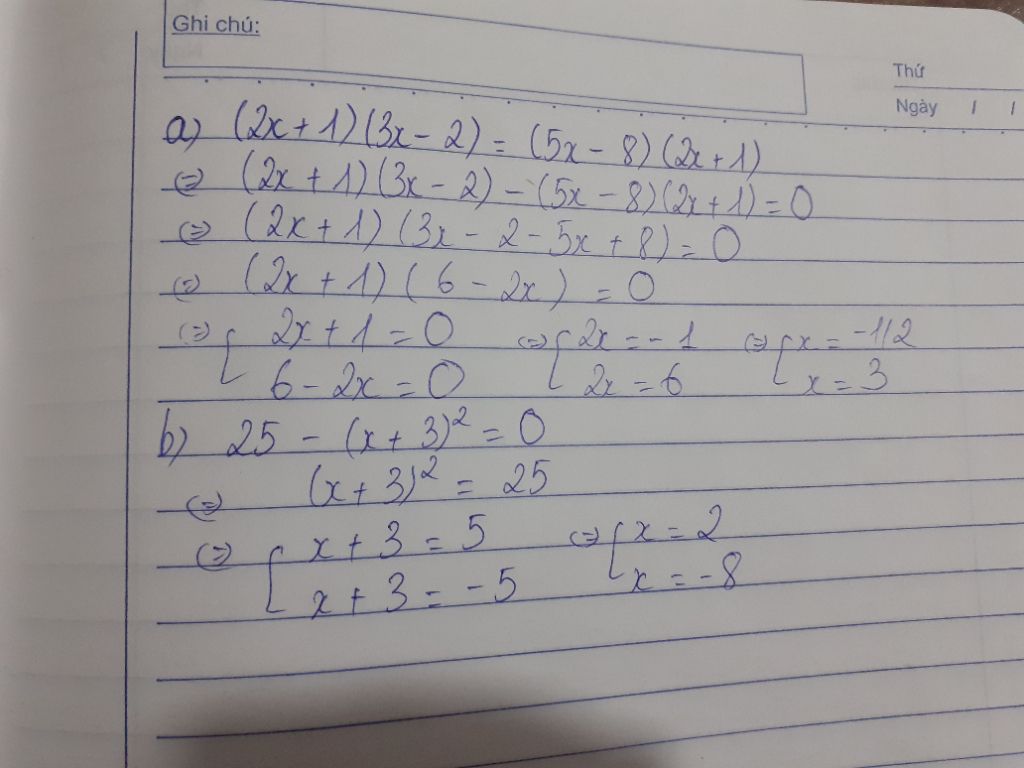 Ghi chú:
Thứ
Ngày / /
a) (2x + 1)(3x - 2) = (5x - 8)(2x + 1)
⇔ (2x + 1)(3x - 2) - (5x - 8)(2x + 1) = 0
⇔ (2x + 1)(3x - 2 - 5x + 8) = 0
⇔ (2x + 1)(6 - 2x) = 0
⇔ [ 2x + 1 = 0 ⇔ [ 2x = -1 ⇔ [ x = -1/2
6 - 2x = 0 2x = 6 x = 3
b) 25 - (x + 3)² = 0
⇔ (x + 3)² = 25
⇔ [ x + 3 = 5 ⇔ [ x = 2
x + 3 = -5 x = -8